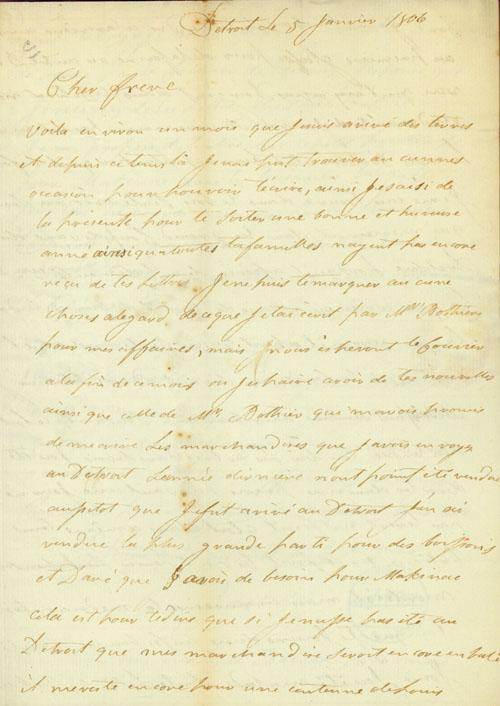 Detroit Le 5 Janvier 1806
Cher frere
Voila environ un mois que Jsuis arivé des terres
et depuis ce tems la Je nais put trouver au cunnes
occasion pour pouvoir t'écrire, ainsi Je saisi de
la présente pour te soiter une bonne et hureuse
anné ainsi qua toutes ta familles nayent pas encore
reçu de tes Lettres Je ne puis te marquer au cune
choses a legard de ce que Je tai écrit par Mr Bothier
pour mes affaires, mais nous esperont le Courier
a la fin de ce mois ou Jespaire avoir de tes nouvelles
ainsi que celle de Mr Bothier que mavois promis
de mecrire Les marchandises que Javois envoyé
au Detroit Lannée dernière nont point été vendus
ausitot que Je fut arivé au Detroit Jen ai
vendue la plus grande parti pour des boissons
et que Javois de besoins pour Makinac
cela est pour te dire que si Je nusse pas été au
Detroit que mes marchandise seroit encore en balé
il me reste encore pour une centenne de Louis